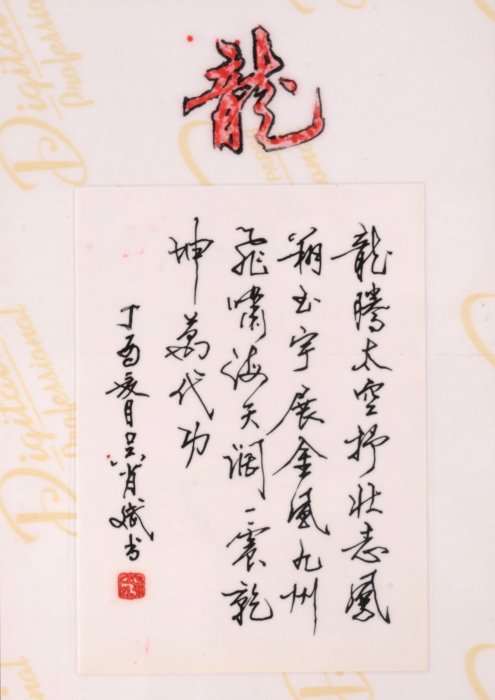 龍
龍騰太空抒壯志鳳
翔玉宇展金風九州
飛嘯海天濶一震乾
坤萬代功
丁酉夏月肖斌書
Digital
Professional
Digital
Professional
Digital
Professional